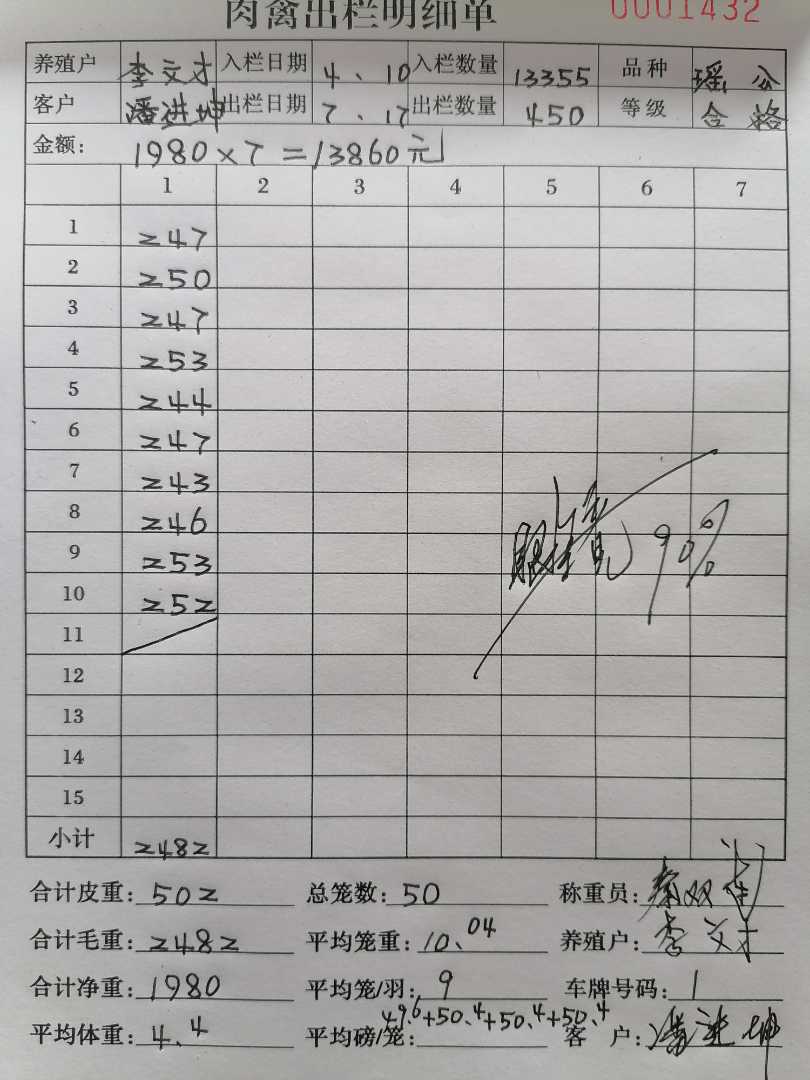 肉禽出栏明细单 0001432
养殖户 李文才 入栏日期 4、10 入栏数量 13355 品种 瑶公
客户 潘进坤 出栏日期 7、17 出栏数量 450 等级 合格
金额: 1980×7=13860元
1 2 3 4 5 6 7
1 247
2 250
3 247
4 253
5 244
6 247
7 243
8 246
9 253
10 252
11
12
13
14
15
90%
小计 2482
合计皮重: 502 总笼数: 50 称重员:
合计毛重: 2482 平均笼重: 10.04 养殖户: 李文才
合计净重: 1980 平均笼/羽: 9 车牌号码: 1
平均体重: 4.4 平均磅/笼: 49.6+50.4+50.4+50.4 客户: 潘进坤